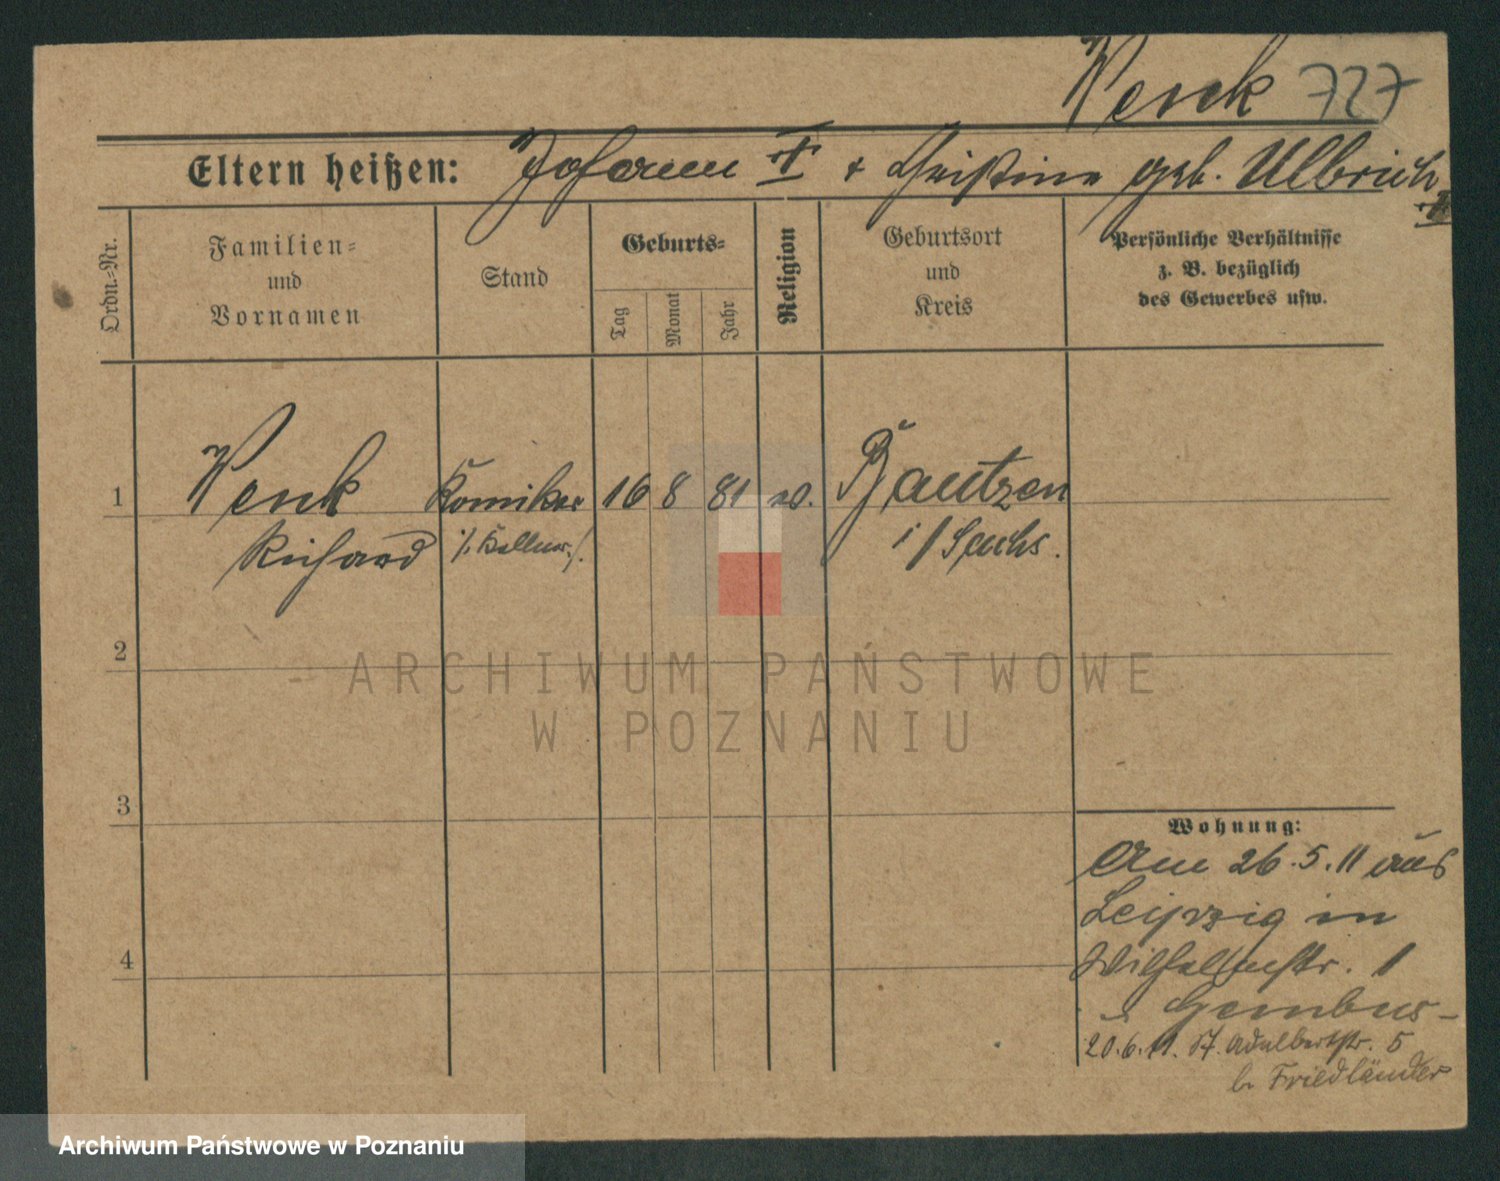 Wenk 727
Eltern heißen: Johann † + Christine geb. Ulbrich †
Ordn.-Nr.
Familien-
und
Vornamen
Stand
Geburts-
Tag
Monat
Jahr
Religion
Geburtsort
und
Kreis
Persönliche Verhältnisse
z. B. bezüglich
des Gewerbes usw.
1 Wenk Komiker 16 8 81 ev. Bautzen
Richard /. Kellner ./. i/Sachs.
2
ARCHIWUM PAŃSTWOWE
W POZNANIU
3
Wohnung:
Am 26.5.11 aus
Leipzig in
Wilhelmstr. 1
20.6.11. St. Adalbertstr. 5
b. Friedländer
4
Archiwum Państwowe w Poznaniu